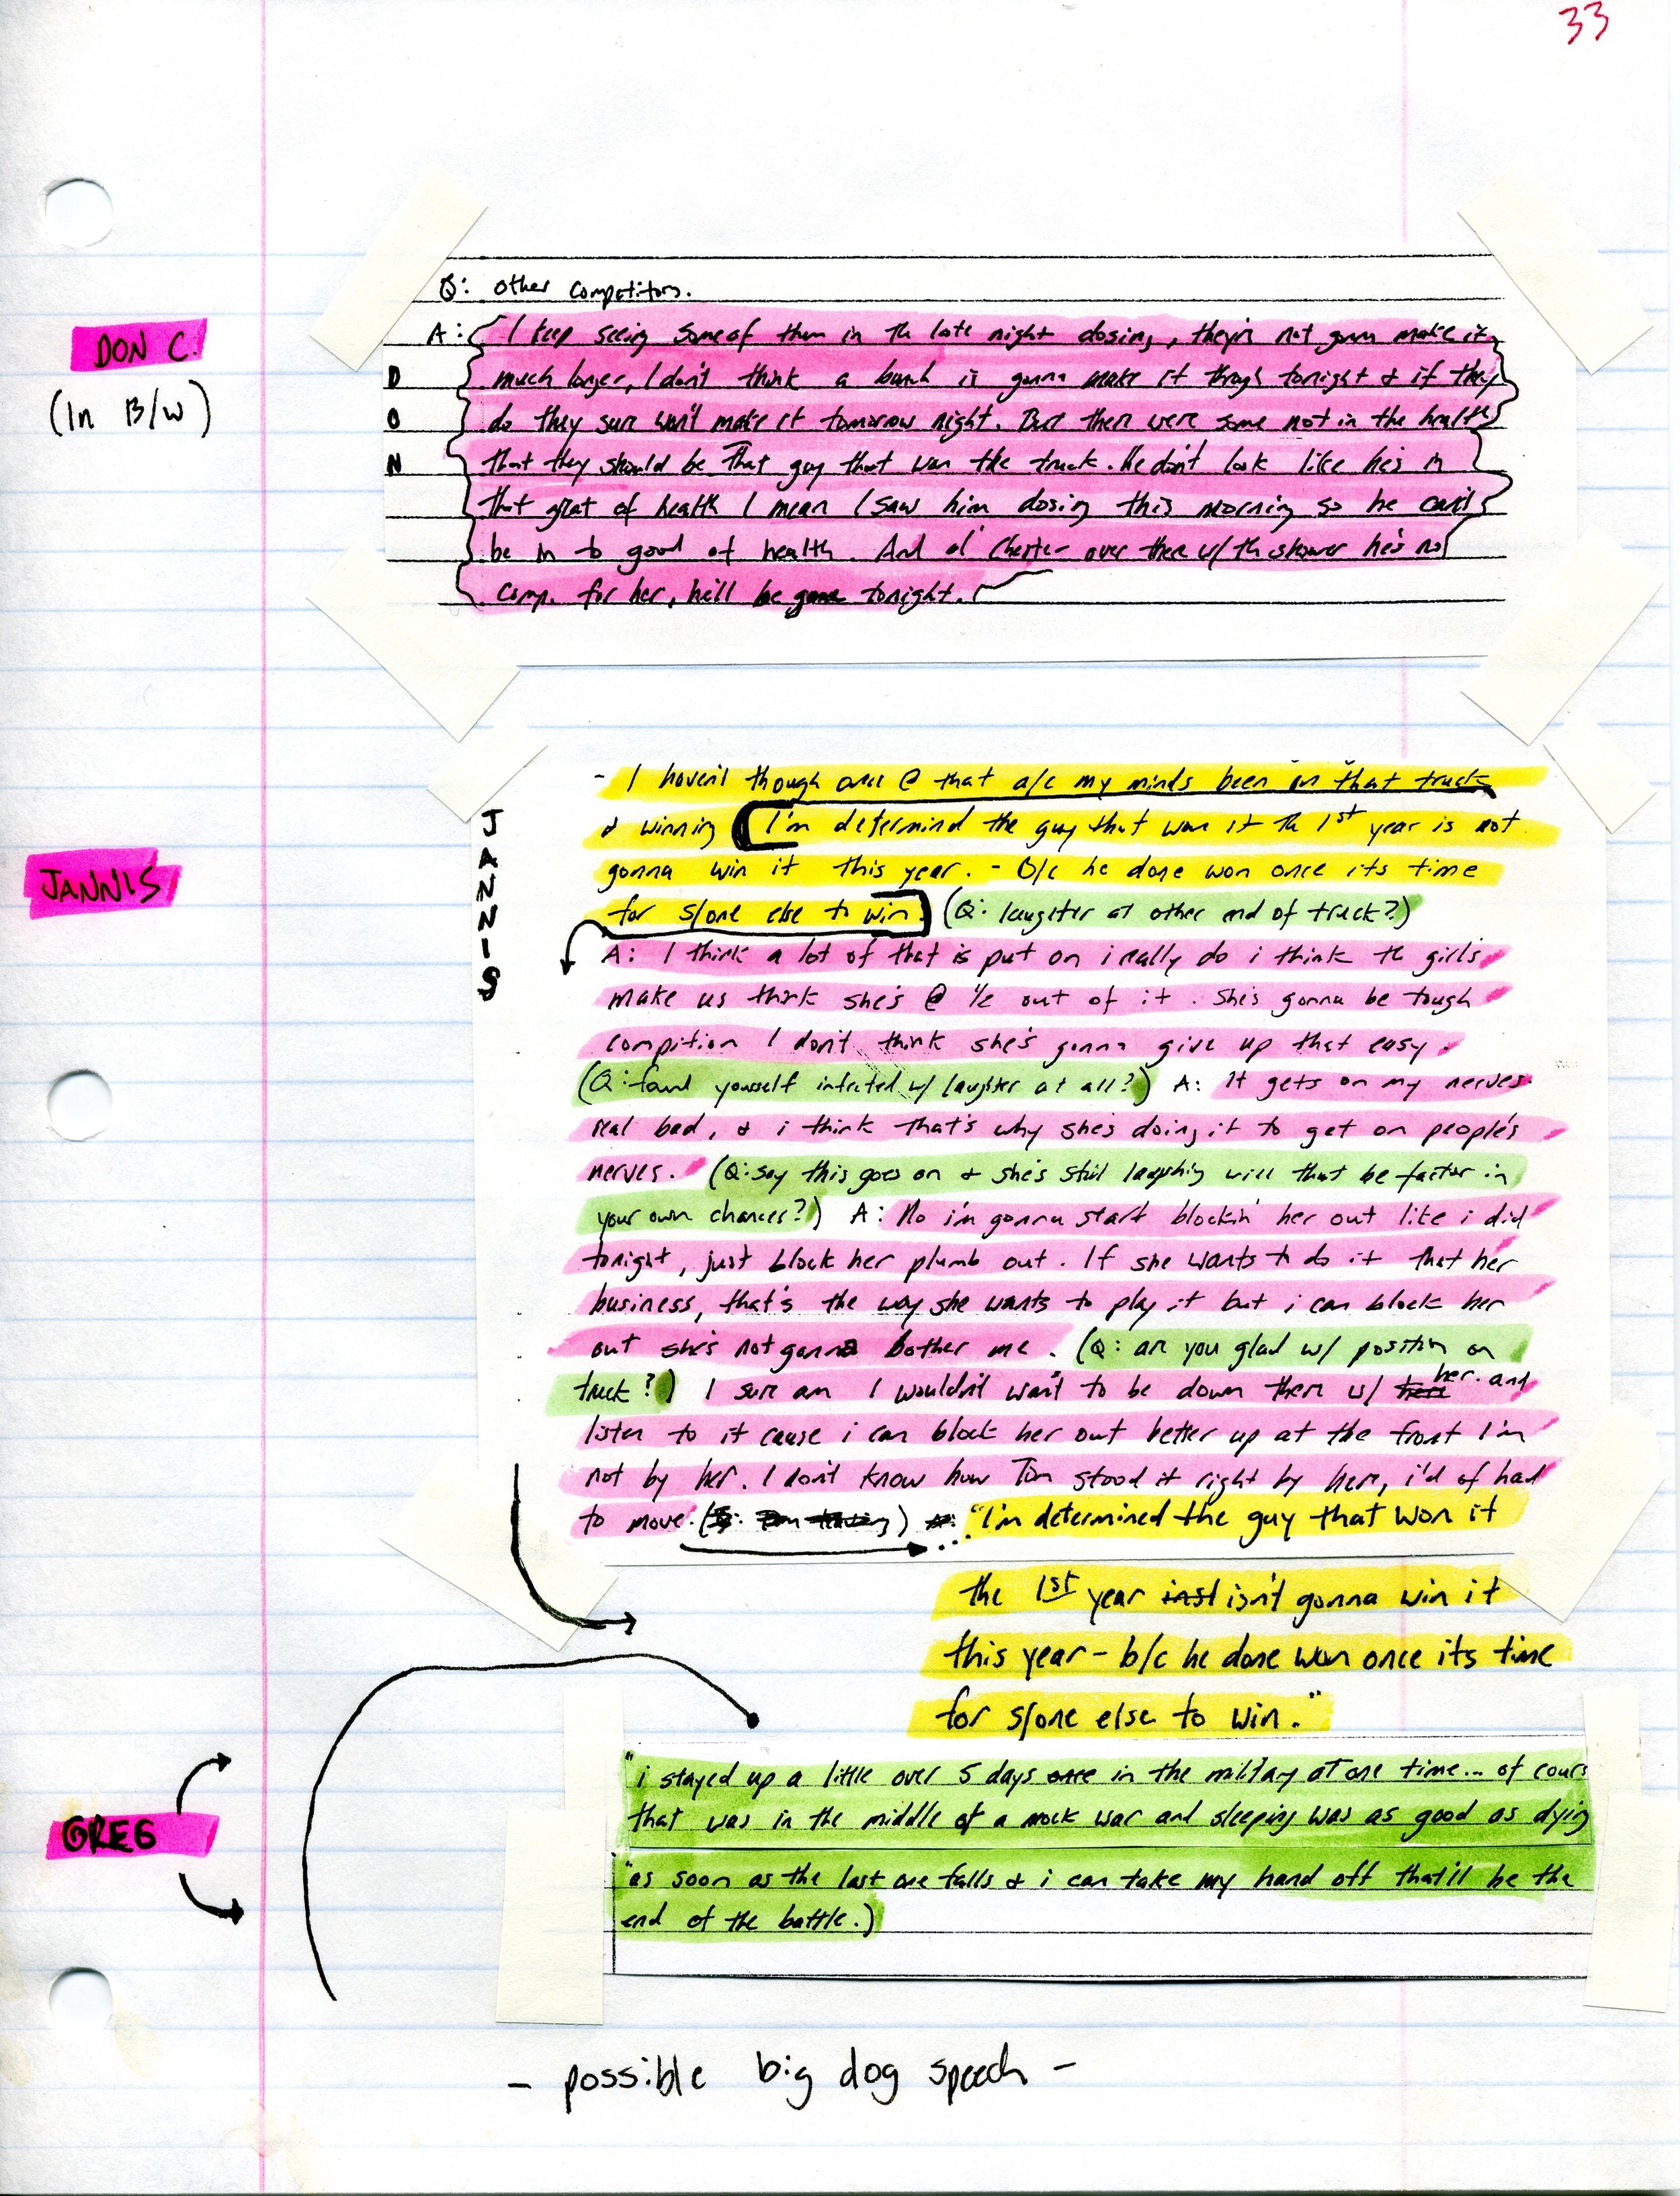 33
Q: Other Competitors.
DON C.
(In B/W)
DON
A: I keep seeing some of them in th late night dosing, they're not gonna make it
much longer, I don't think a bunch is gonna make it through tonight & if they
do they sure won't make it tomorrow night. But there were some not in the health
that they should be That guy that won the truck. He don't look like he's in
that great of health I mean I saw him dosing this morning so he can't
be in to good of health. And ol' Chester over there w/ th he's no
comp. for her, he'll be gone tonight.
JANNIS
JANNIS
- I haven't though once @ that a/c my minds been on that truck
& winning I'm determind the guy that won it th 1st year is not
gonna win it this year. - B/c he done won once its time
for s/one else to win. (Q: laughter at other end of truck?)
A: I think a lot of that is put on i really do i think th girls
make us think she's @ 1/2 out of it. She's gonna be tough
compition I don't think she's gonna give up that easy.
(Q: found yourself infected w/ laughter at all?) A: It gets on my nerves
real bad, & i think that's why she's doing it to get on people's
nerves. (Q: say this goes on & she's still laughing will that be factor in
your own chances?) A: No i'm gonna start blockin' her out like i did
tonight, just block her plumb out. If she wants to do it that her
business, that's the way she wants to play it but i can block her
out she's not gonna bother me. (Q: are you glad w/ position on
truck?) I sure am I wouldn't want to be down there w/ her. and
listen to it cause i can block her out better up at the front I'm
not by her. I don't know how Tim stood it right by here, i'd of had
to move. ... "I'm determined the guy that won it
the 1st year isn't gonna win it
this year - b/c he done won once its time
for s/one else to win."
GREG
"i stayed up a little over 5 days once in the military at one time... of cours
that was in the middle of a mock war and sleeping was as good as dying
"as soon as the last one falls & i can take my hand off that'll be the
end of the battle.)
- possible big dog speech -